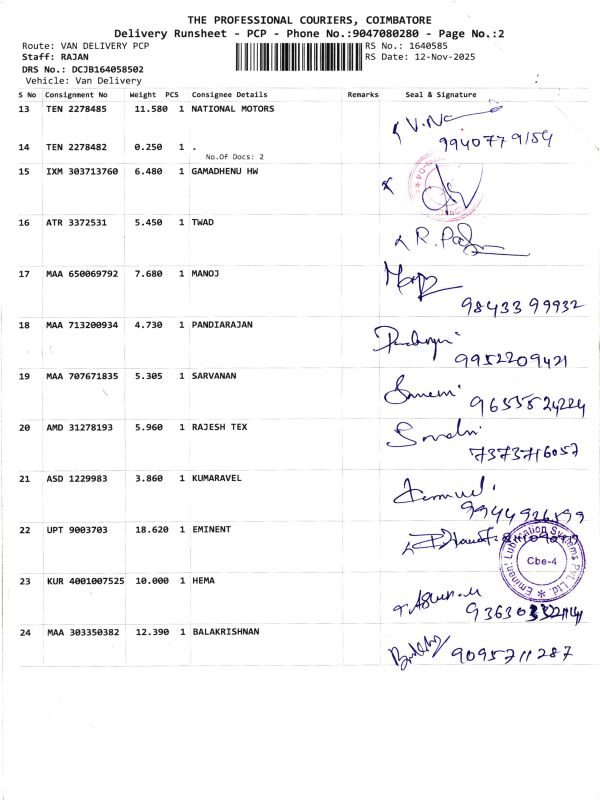 THE PROFESSIONAL COURIERS, COIMBATORE
Delivery Runsheet - PCP - Phone No.:9047080280 - Page No.:2
Route: VAN DELIVERY PCP RS No.: 1640585
Staff: RAJAN RS Date: 12-Nov-2025
DRS No.: DCJB164058502
Vehicle: Van Delivery
S No Consignment No Weight PCS Consignee Details Remarks Seal & Signature
13 TEN 2278485 11.580 1 NATIONAL MOTORS
9940779159
14 TEN 2278482 0.250 1 .
No.Of Docs: 2
15 IXM 303713760 6.480 1 GAMADHENU HW
16 ATR 3372531 5.450 1 TWAD
17 MAA 650069792 7.680 1 MANOJ
98433 99932
18 MAA 713200934 4.730 1 PANDIARAJAN
9952209421
19 MAA 707671835 5.305 1 SARVANAN
20 AMD 31278193 5.960 1 RAJESH TEX
7373716057
21 ASD 1229983 3.860 1 KUMARAVEL
22 UPT 9003703 18.620 1 EMINENT
Eminent Lubrication Systems Pvt. Ltd
Cbe-4
23 KUR 4001007525 10.000 1 HEMA
24 MAA 303350382 12.390 1 BALAKRISHNAN
9095711287